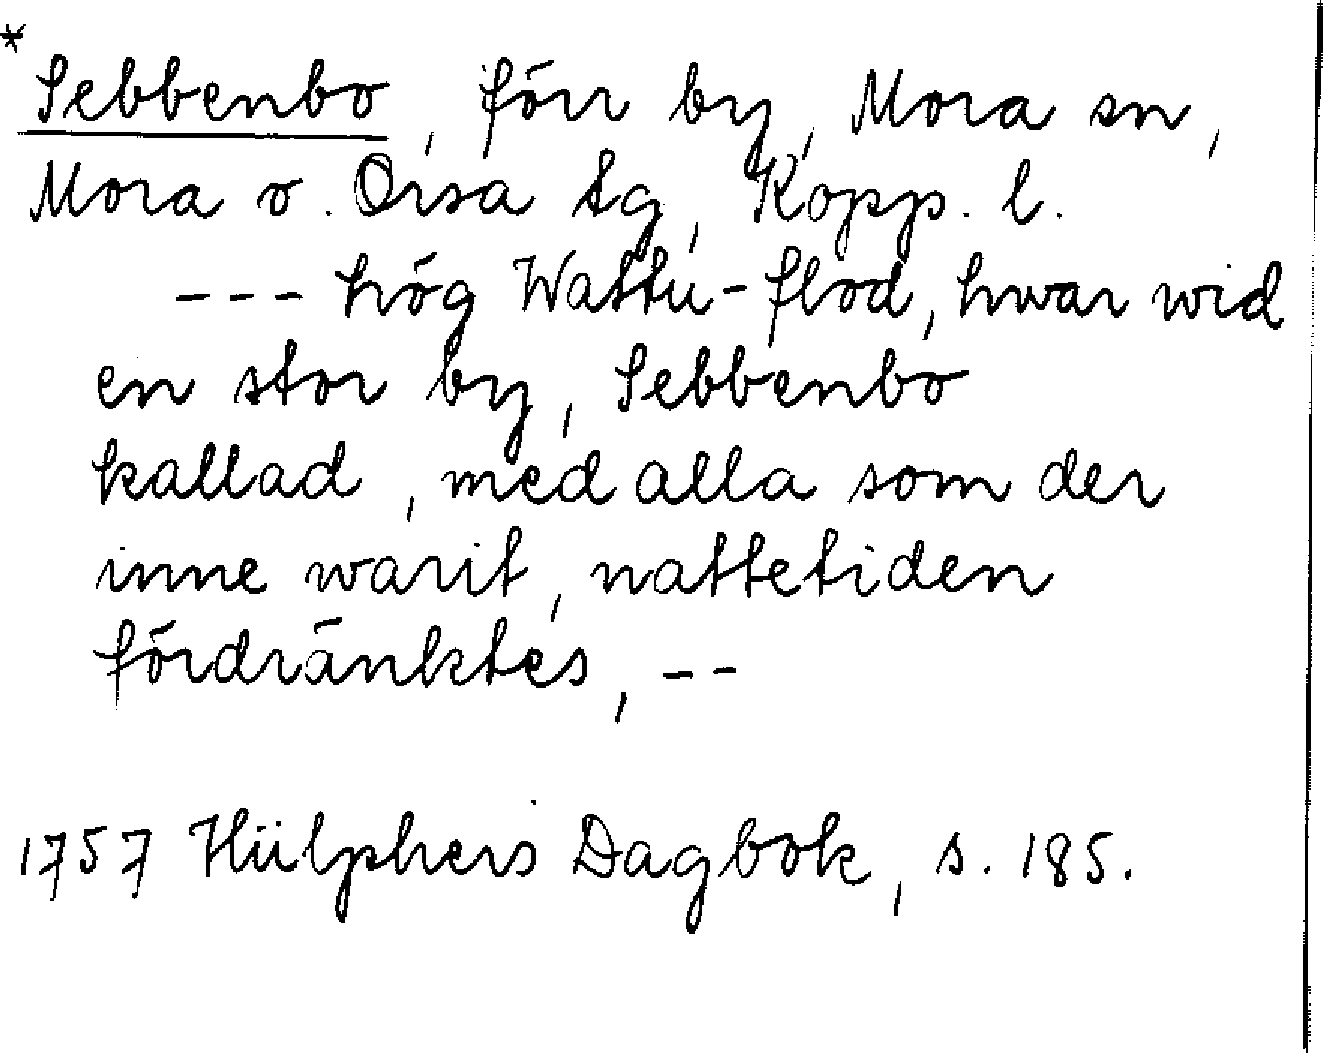 * Sebbenbo, förr by, Mora sn,
Mora o. Orsa tg, Kopp. l.
--- hög Wattu-flod, hwar wid
en stor by, Sebbenbo
kallad, med alla som der
inne warit, nattetiden
fördränktes, --
1757 Hülphers Dagbok, s. 185.